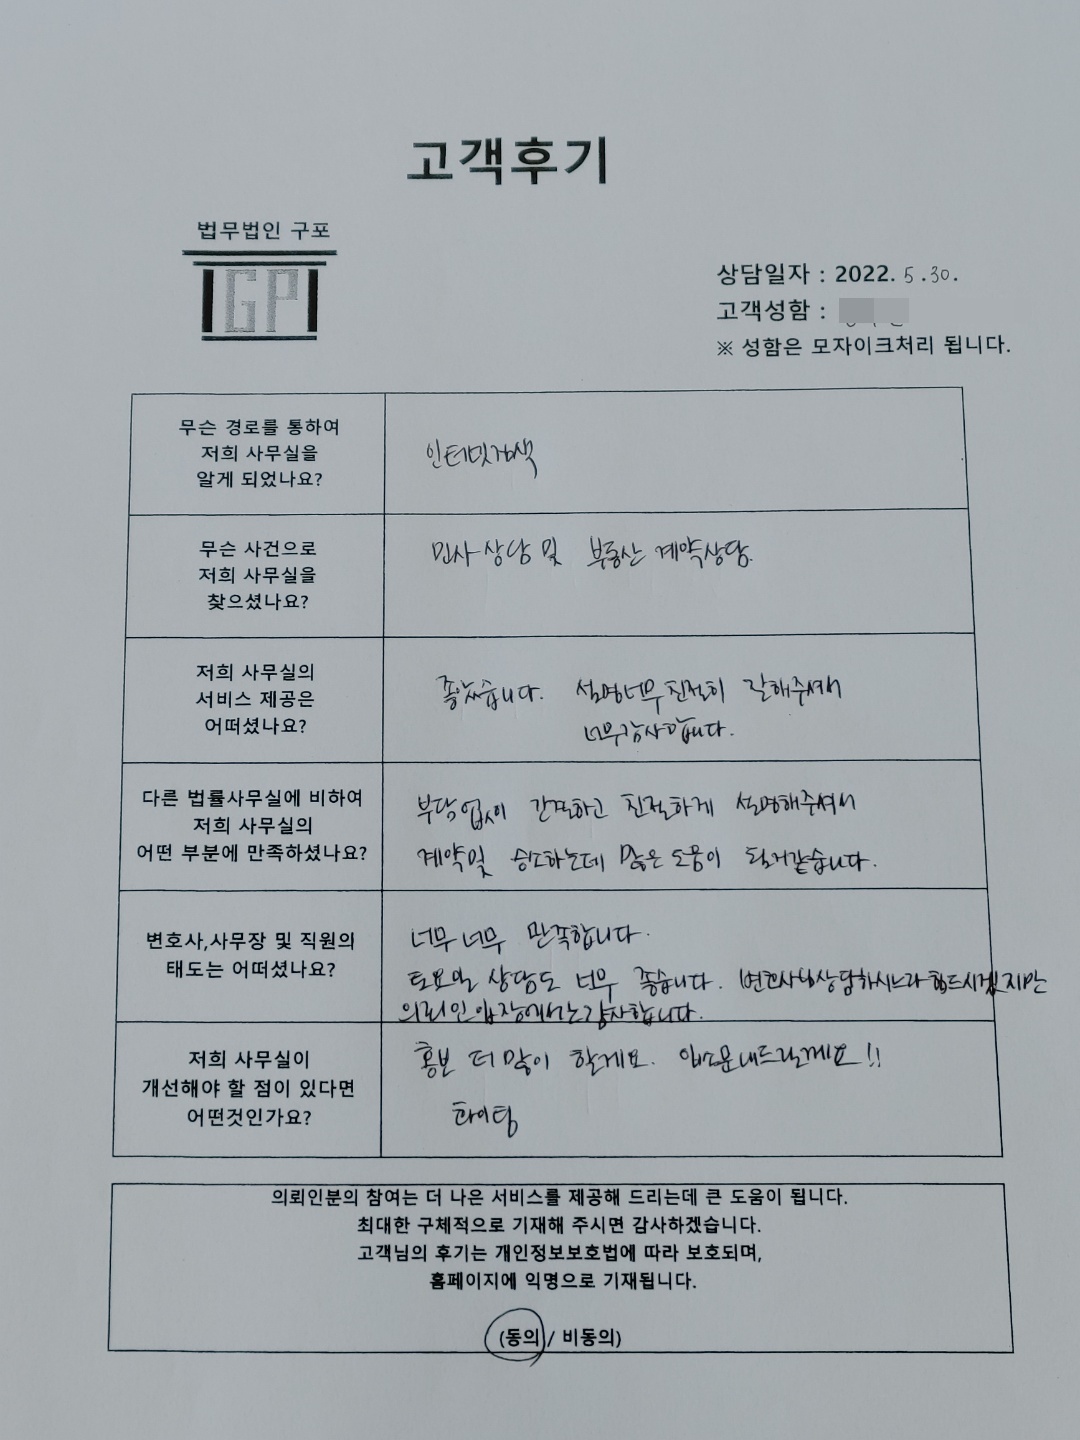 고객후기
법무법인 구포
GP
상담일자 : 2022. 5.30.
고객성함 :
※ 성함은 모자이크처리 됩니다.
무슨 경로를 통하여
저희 사무실을
알게 되었나요?
인터넷검색
무슨 사건으로
저희 사무실을
찾으셨나요?
민사상담 및 부동산 계약상담.
저희 사무실의
서비스 제공은
어떠셨나요?
좋았습니다. 설명너무친절히 잘해주셔서
너무감사합니다.
다른 법률사무실에 비하여
저희 사무실의
어떤 부분에 만족하셨나요?
부담없이 간결하고 친절하게 설명해주셔서
계약및 승소하는데 많은 도움이 될거같습니다.
변호사,사무장 및 직원의
태도는 어떠셨나요?
너무너무 만족합니다.
토요일 상담도 너무 좋습니다. 변호사님상담하시느라힘드시겠지만
의뢰인입장에서는감사합니다.
저희 사무실이
개선해야 할 점이 있다면
어떤것인가요?
홍보 더많이 할게요. 입소문내드릴께요!!
화이팅
의뢰인분의 참여는 더 나은 서비스를 제공해 드리는데 큰 도움이 됩니다.
최대한 구체적으로 기재해 주시면 감사하겠습니다.
고객님의 후기는 개인정보보호법에 따라 보호되며,
홈페이지에 익명으로 기재됩니다.
(동의 / 비동의)